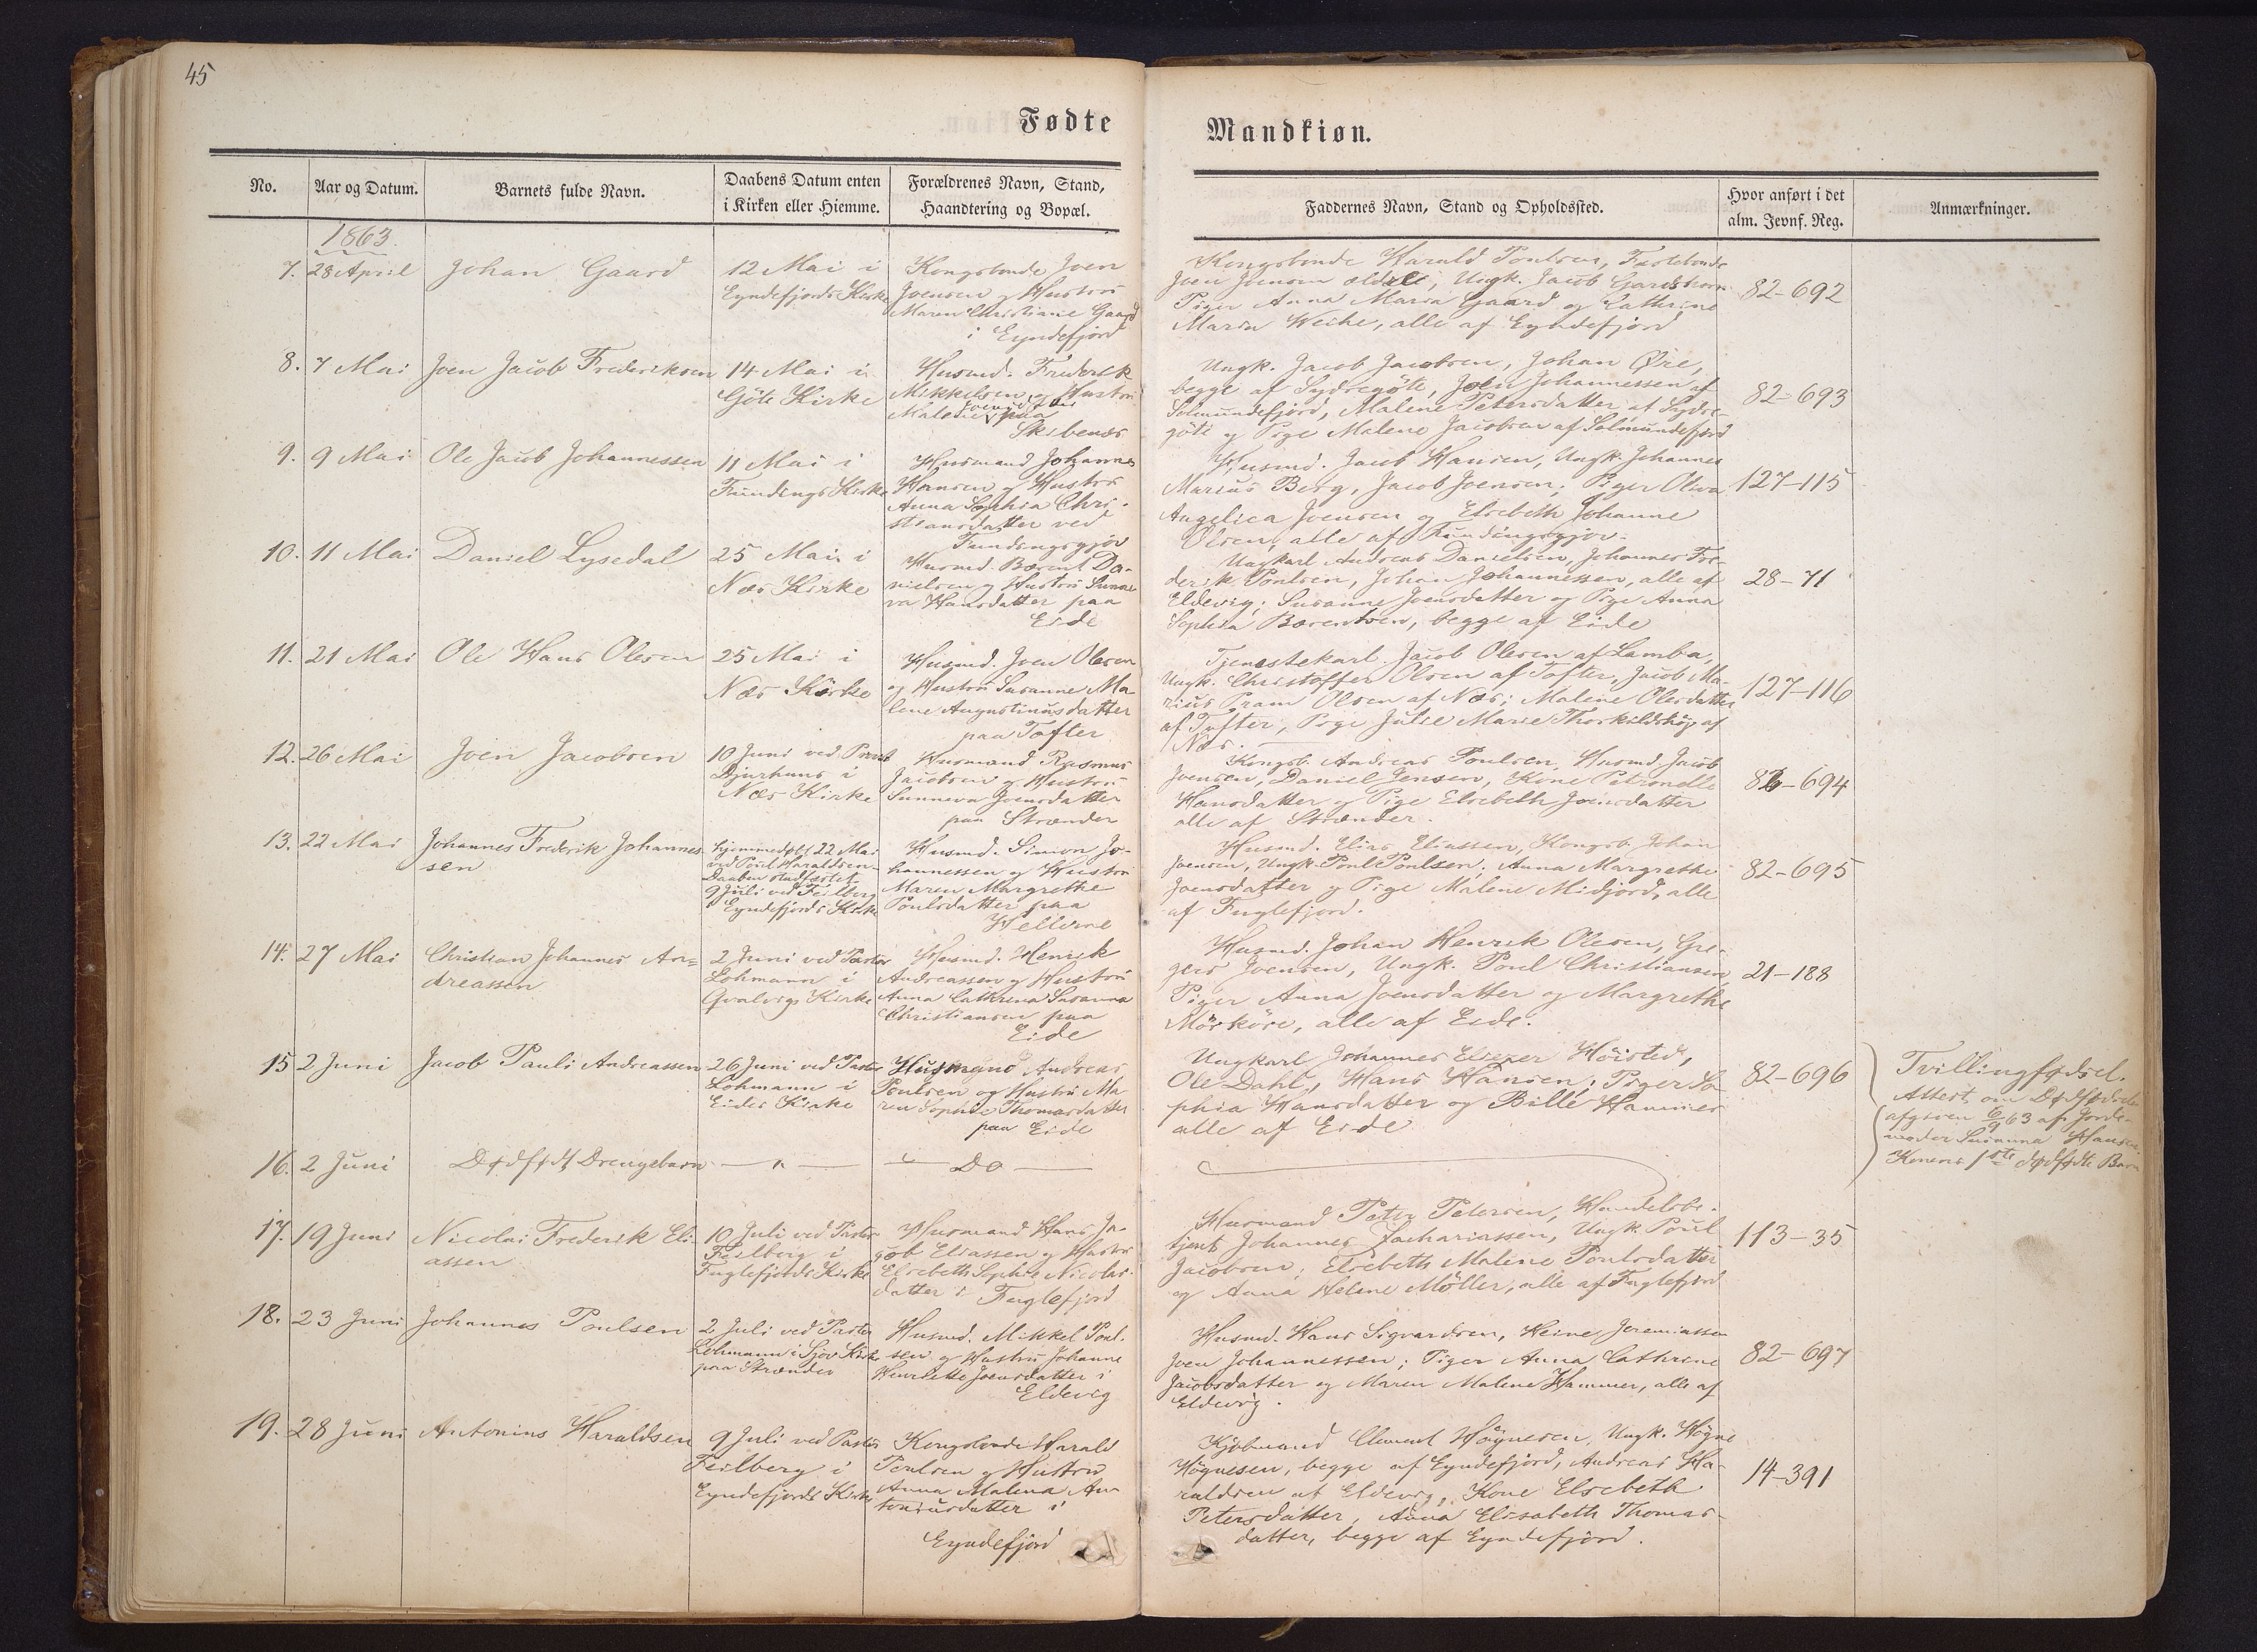 45
Fødte
Mandkiøn.
No.
Aar og Datum.
Barnets fulde Navn.
Daabens Datum enten
i Kirken eller Hiemme.
Forældrenes Navn, Stand,
Haandtering og Bopæl.
Faddernes Navn, Stand og Opholdssted.
Hvor anført i det
alm. Jevnf. Reg.
Anmærkninger.
1863.
7.
28 April
Johan Gaard
12 Mai i
Eyndefjords Kirke
Kongsbonde Joen
Joensen og Hustru
Maren Christiane Gaard
i Eyndefjord
Kongsbonde Harald Poulsen, Fæstebonde
Joen Joensen ældre, Ungk. Jacob
Piger Anna Maria Gaard og Cathrine
Maria Weihe, alle af Eyndefjord
82-692
8.
7 Mai
Joen Jacob Frederiksen
14 Mai i
Göte Kirke
Husmd. Frederik
Mikkelsen og Hustru
Malene paa
Skibenæs
Ungk. Jacob Jacobsen, Johan Øre,
begge af Sydregöte, Joen Johannessen af
Solmundefjord, Malene Petersdatter af Sydre-
göte og Pige Malene Jacobsen af Solmundefjord
82-693
9.
9 Mai
Ole Jacob Johannessen
11 Mai i
Fundings Kirke
Husmand Johannes
Hansen og Hustru
Anna Sophia Chri-
stiansdatter ved
Fundingsgjov
Husmd. Jacob Hansen, Ungk. Johannes
Marius Berg, Jacob Joensen; Piger Oliva
Angelica Joensen og Elsebeth Johanne
Olsen, alle af Fundingsgjov.
127-115
10.
11 Mai
Daniel Lysedal
25 Mai i
Næs Kirke
Husmd. Bærent Da-
nielsen og Hustru Sunne
va Hansdatter paa
Eide
Ungkarl Andreas Danielsen, Johannes Fre-
derik Poulsen, Johan Johannessen, alle af
Eldevig; Susanne Joensdatter og Pige Anna
Sophia Bærentsen, begge af Eide
28-71
11.
21 Mai
Ole Hans Olesen
25 Mai i
Næs Kirke
Husmd. Joen Olesen
og Hustru Susanne Ma-
lene Augustinusdatter
paa Tofter
Tjenestekarl Jacob Olesen af Lamba,
Ungk. Christoffer Olsen af Tofter, Jacob Ma-
rius Pram Olsen af Næs; Malene Olesdatter
af Tofter, Pige Julie Marie Thorkildshöj af
Næs.
127-116
12.
26 Mai
Joen Jacobsen
10 Juni ved Provst
Djurhuus i
Næs Kirke
Husmand Rasmus
Jacobsen og Hustru
Sunneva Joensdatter
paa Strænder
Kongsb. Andreas Poulsen, Husmd. Jacob
Joensen, Daniel Jensen, Kone Petronelle
Hansdatter og Pige Elsebeth Joensdatter
alle af Strænder.
82-694
13.
22 Mai
Johannes Frederik Johannes-
sen
hjemmedöbt 22 Mai
ved Poul Haraldsen
Daaben stadfæstet
9 Juli ved Feilberg
i Eyndefjords Kirke
Husmd. Simon Jo-
hannessen og Hustru
Maren Margrethe
Poulsdatter paa
Hellerne
Husmd. Elias Eliassen, Kongsb. Johan
Joensen, Ungk. Poul Poulsen; Anna Margrethe
Joensdatter og Pige Malene Midjord, alle
af Fuglefjord.
82-695
14.
27 Mai
Christian Johannes An-
dreassen
2 Juni ved Pastor
Lohmann i
Qvalvigs Kirke
Husmd. Henrik
Andreassen og Hustru
Anna Cathrina Susanna
Christiansen paa
Eide
Husmd. Johan Henrik Olesen, Gre-
gers Joensen, Ungk. Poul Christiansen,
Piger Anna Joensdatter og Margrethe
Mörköre, alle af Eide.
21-188
15
2 Juni
Jacob Pauli Andreassen
26 Juni ved Pastor
Lohmann i
Eides Kirke
Husmand Andreas
Poulsen og Hustru Ma-
ren Sophie Thomasdatter
paa Eide
Ungkarl Johannes Eliezer Höisted,
Ole Dahl, Hans Hansen; Piger So-
phia Hansdatter og Bille Hammer
alle af Eide
82-696
Tvillingfødsel.
Attest om Dødfødselen
afgiven 6/9 63 af Jorde-
moder Susanna Hansen.
Konens 1ste dødfødte Barn
16.
2 Juni
Dødfødt Drengebarn
— " —
— Do —
17.
19 Juni
Nicolai Frederik Eli-
assen
10 Juli ved Pastor
Feilberg i
Fuglefjords Kirke
Husmand Hans Ja-
cob Eliassen og Hustru
Elsebeth Sophie Nicolai-
datter i Fuglefjord
Husmand Peter Petersen, Handelsbe-
tjent Johannes Zachariassen, Ungk. Poul
Jacobsen; Elsebeth Malene Poulsdatter
og Anna Helene Möller, alle af Fuglefjord
113-35
18.
23 Juni
Johannes Poulsen
2 Juli ved Pastor
Lohmann i Sjov Kirke
paa Strænder
Husmd. Mikkel Poul-
sen og Hustru Johanne
Henriette Joensdatter i
Eldevig
Husmd. Hans Sigvardsen, Heine Jeremiassen
Joen Johannessen; Piger Anna Cathrine
Jacobsdatter og Maren Malene Hammer, alle af
Eldevig.
82-697
19.
28 Juni
Antonius Haraldsen
9 Juli ved Pastor
Feilberg i
Eyndefjords Kirke
Kongsbonde Harald
Poulsen og Hustru
Anna Malena An-
toniusdatter i
Eyndefjord
Kjöbmand Clement Högnesen, Ungk. Högne
Högnesen, begge af Eyndefjord, Andreas Ha-
raldsen af Eldevig, Kone Elsebeth
Petersdatter, Anna Elisabeth Thomas-
datter, begge af Eyndefjord.
14-391